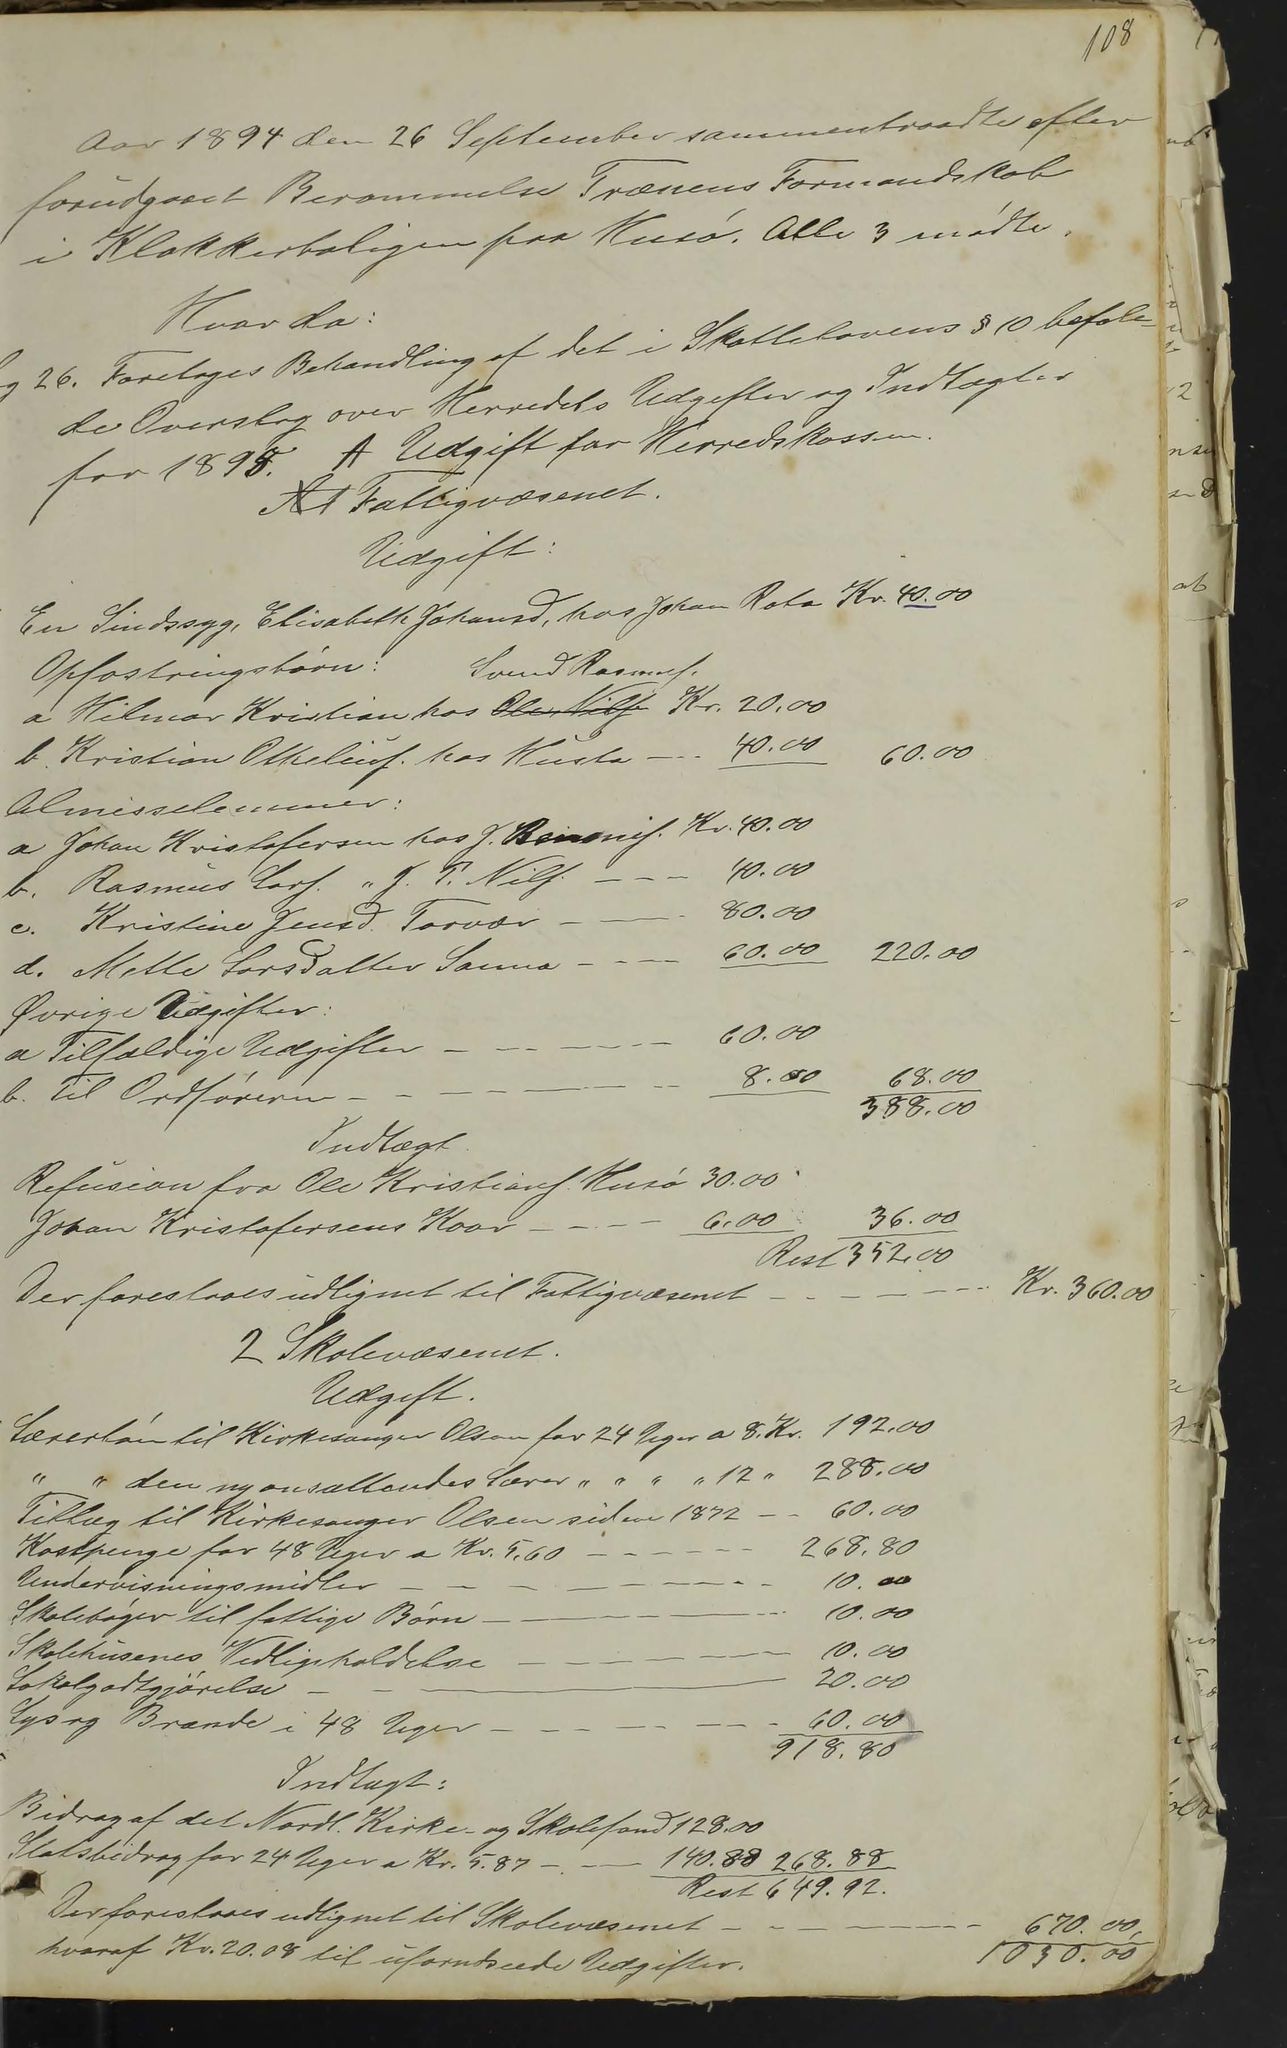 108
Aar 1894 den 26 September sammentraadte efter
forudgaaet Berammelse Trænens Formandskab
i Klokkerboligen paa Husö. Alle 3 mödte.
Hvorda:
26. Foretoges Behandling af det i Skattelovens § 10 befale-
de Overslag over Herredets Udgifter og Indtægter
for 1895. A Udgift for Herredskassen.
1 Fattigvæsenet.
Udgift:
En Sindssyg, Elisabeth Johansd, hos Johan Kr. 40.00
Opfostringsbörn: Svend Rasmuss.
a Hilmar Kristian hos Ole Nilss Kr. 20.00
b. Kristian hos Husta — 40.00 60.00
Almisselemmer:
a Johan Kristofersen hos J. Benonis. Kr. 40.00
b. Rasmus Lars. " J. P. Nils. — 40.00
c. Kristine Jensd. Torvær — 80.00
d. Mette Larsdatter Sanna — 60.00 220.00
Øvrige Udgifter:
a Tilfældige Udgifter — 60.00
b. Til Ordföreren — 8.00 68.00
388.00
Indtægt
Refusion fra Ole Kristians. Husö 30.00
Johan Kristofersens Kaar — 6.00 36.00
Rest 352.00
Der foreslaaes udlignet til Fattigvæsenet — Kr. 360.00
2 Skolevæsenet.
Udgift.
Lærerlön til Kirkesanger Olsen for 24 Uger a 8. Kr. 192.00
" " den nyansættendes Lærer " " " " 12 " 288.00
Tillæg til Kirkesanger Olsen siden 1872 — 60.00
Kostpenge for 48 Uger a Kr. 5.60 — 268.80
Undervisningsmidler — 10.00
Skoleböger til fattige Börn — 10.00
Skolehusenes Vedligeholdelse — 10.00
Lokalgodtgjörelse — 20.00
Lys og Brænde i 48 Uger — 60.00
918.80
Indtægt:
Bidrag af det Nordl. Kirke- og Skolefond 128.00
Statsbidrag for 24 Uger a Kr. 5.87 — 140.88 268.88
Rest 649.92.
Der foreslaaes udlignet til Skolevæsenet — 670.00,
hvoraf Kr. 20.08 til uforudseede Udgifter. 1030.00